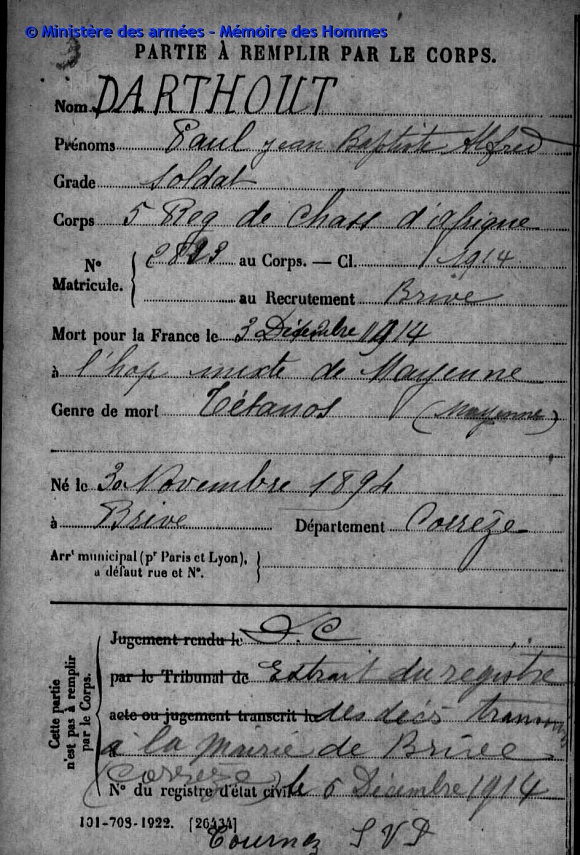 © Ministère des armées - Mémoire des Hommes
PARTIE À REMPLIR PAR LE CORPS.
Nom DARTHOUT
Prénoms Paul jean Baptiste Alfred
Grade soldat
Corps 5 Reg de chass d'afrique
N° Matricule. { au Corps. — Cl. 1914
au Recrutement Brive
Mort pour la France le 3 Décembre 1914
à l'hop mixte de Mayenne
Genre de mort Tétanos (Mayenne)
Né le 30 Novembre 1894
à Brive Département Corrèze
Arrt municipal (pr Paris et Lyon),
à défaut rue et N°. }
Cette partie n'est pas à remplir par le Corps. {
Jugement rendu le D.C
par le Tribunal de Extrait du registre
acte ou jugement transcrit le des décès transmis
à la Mairie de Brive
(Corrèze)
N° du registre d'état civil le 6 Décembre 1914
101-708-1922. [26434]
Tournez S V P